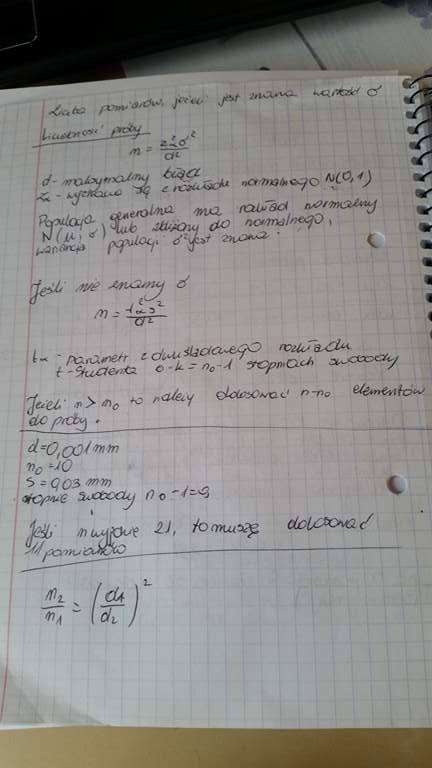 Liczba pomiarów, jeżeli jest znana wartość σ
Liczebność próby
n = z²α σ² / d²
d - maksymalny błąd
zα - wyznacza się z rozkładu normalnego N(0,1)
Populacja generalna ma rozkład normalny
N(μ, σ) lub zbliżony do normalnego,
wariancja populacji σ² jest znana.
Jeśli nie znamy σ
n = t²α s² / d²
tα - parametr z dwuśladowego rozkładu
t-Studenta o k = n₀-1 stopniach swobody
Jeżeli n > n₀ to należy dolosować n-n₀ elementów
do próby.
d = 0,001 mm
n₀ = 10
S = 0,03 mm
stopnie swobody n₀-1 = 9
Jeśli n wyjdzie 21, to muszę dolosować
11 pomiarów
n₂/n₁ = (d₁/d₂)²